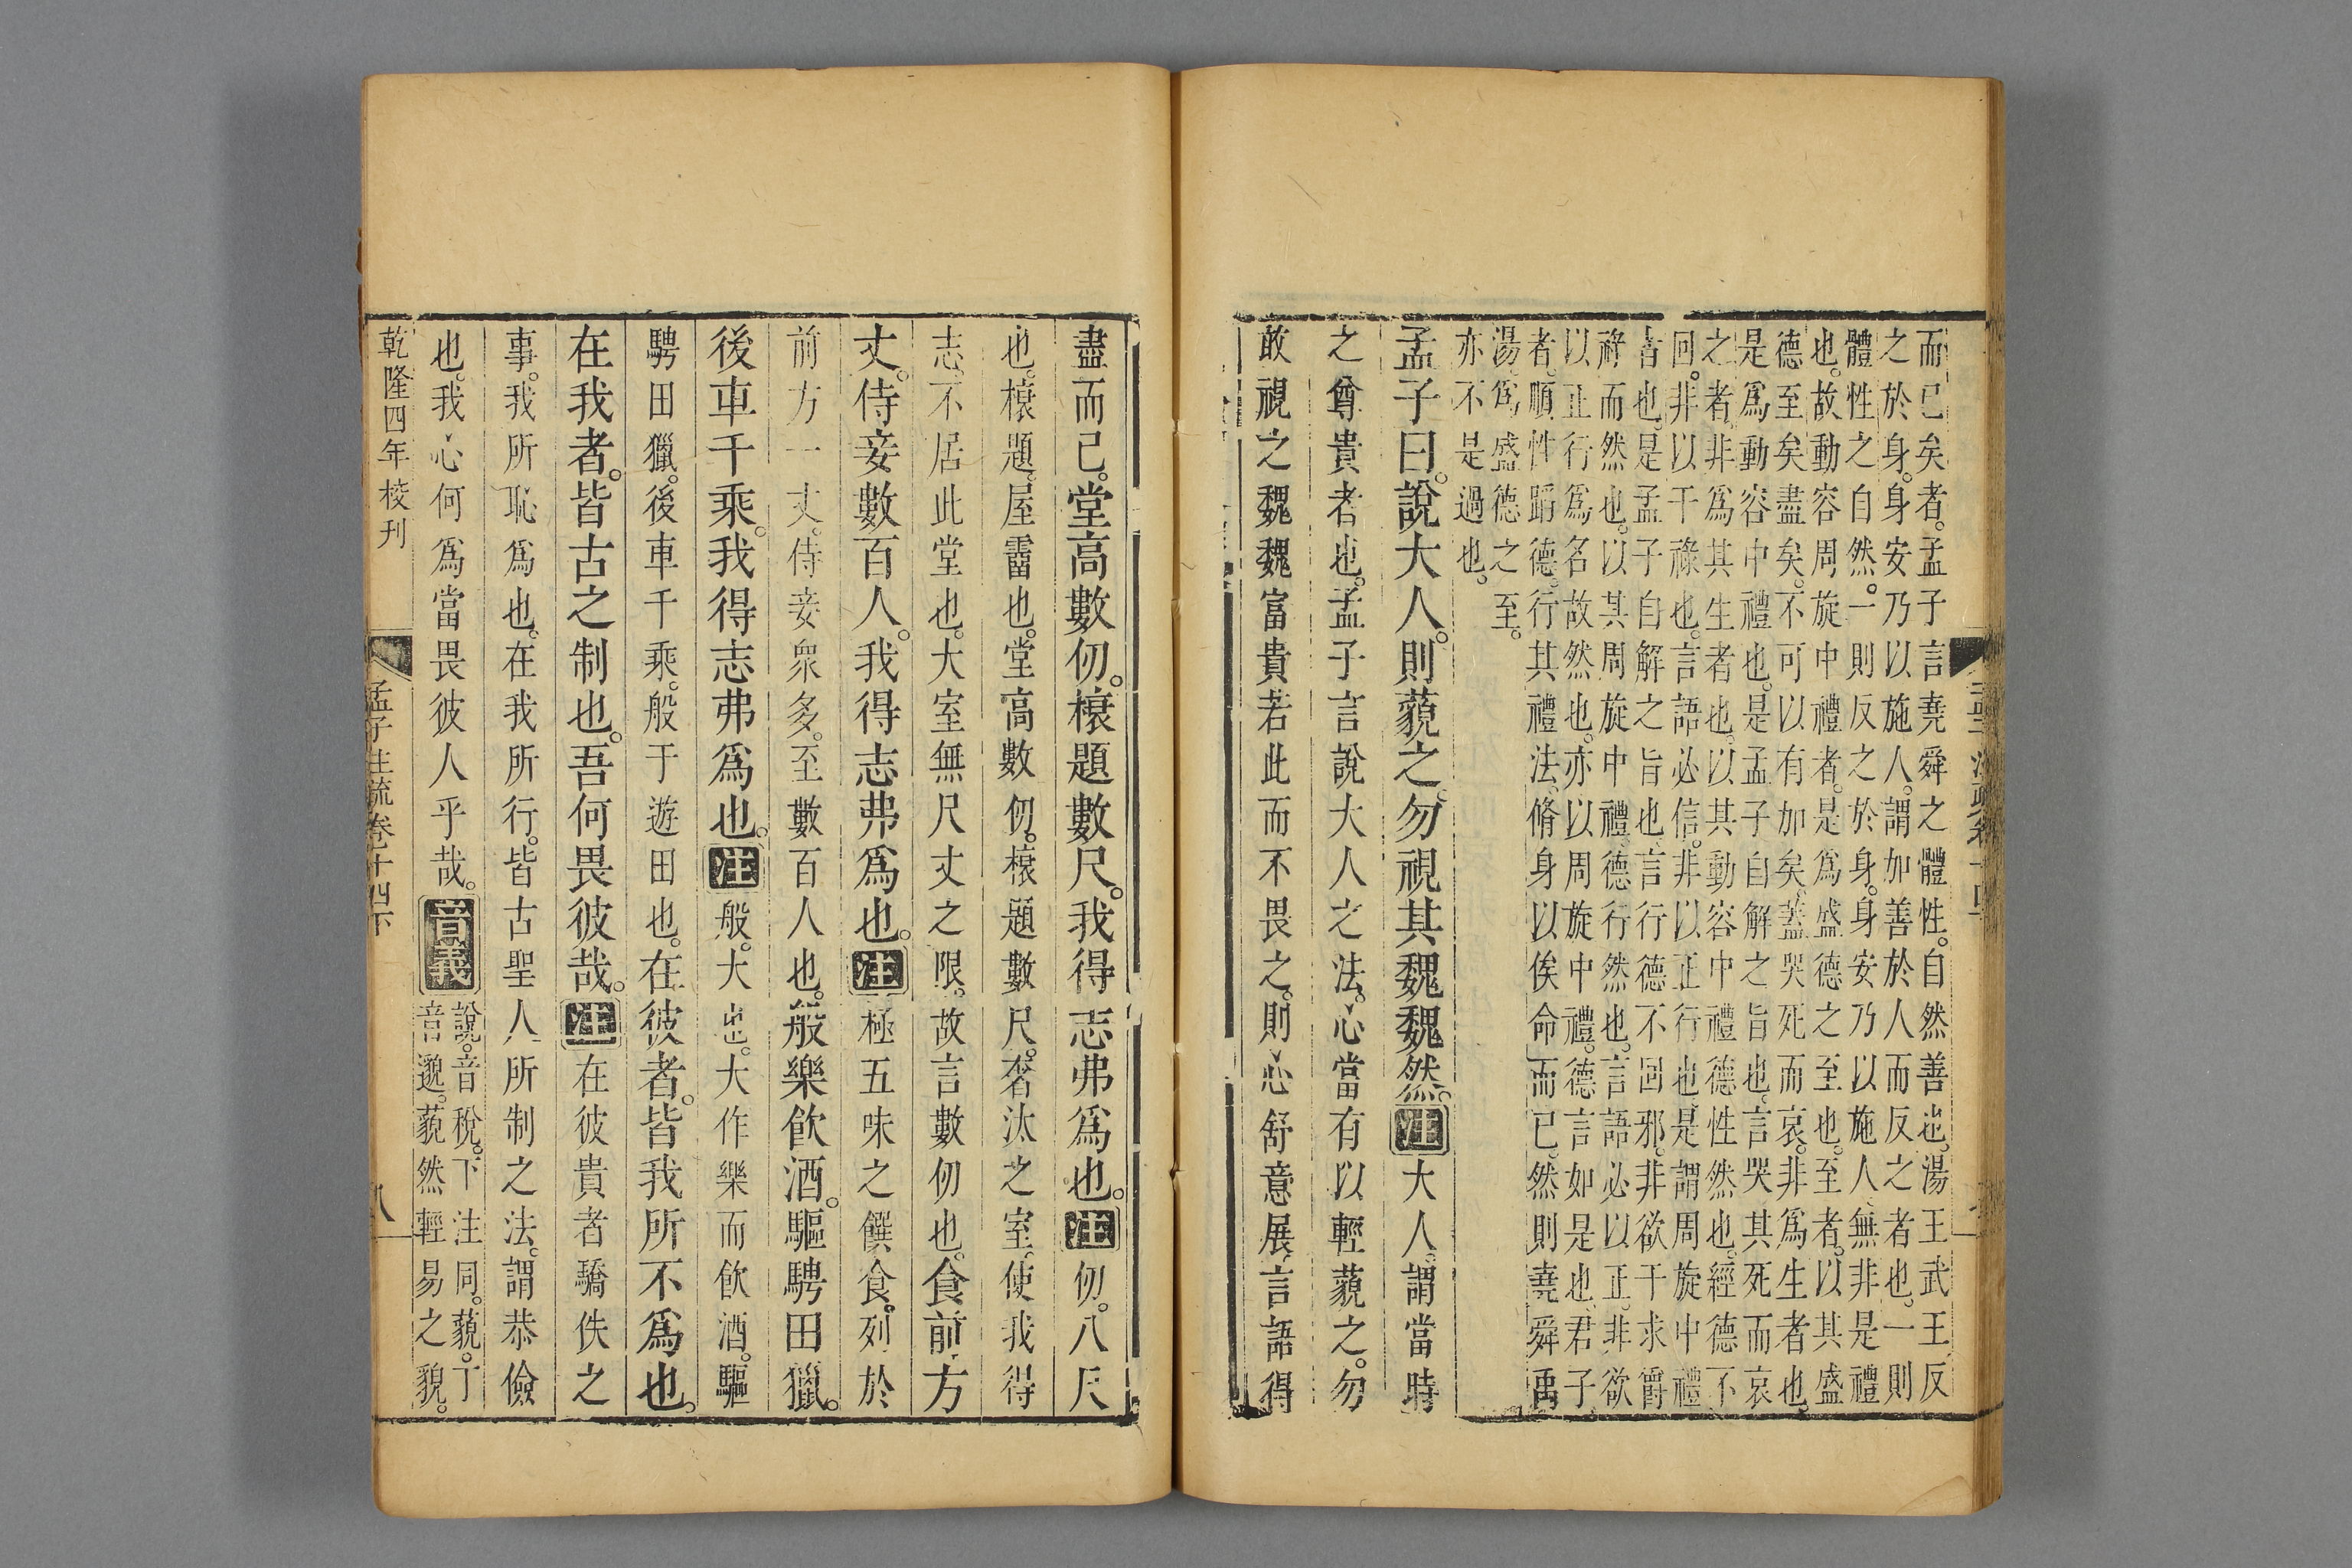 而已矣者。孟子言堯舜之體性。自然善也。湯王武王反
之於身。身安乃以施人。謂加善於人而反之者也。一則
體性之自然。一則反之於身。身安乃以施人。無非是禮
也。故動容周旋中禮者。是爲盛德之至也。至者。以其盛
德至矣盡矣。不可以有加矣。蓋哭死而哀。非爲生者也。
是爲動容中禮也。是孟子自解之旨也。言哭其死而哀
之者。非爲其生者也。以其動容中禮德性然也。經德不
回。非以干祿也。言語必信。非以正行也。是謂周旋中禮
者也。是孟子自解之旨也。言行德不回邪。非欲干求爵
祿而然也。以其周旋中禮。德行然也。言語必以正。非欲
以正行爲名故然也。亦以周旋中禮。德言如是也。君子
者。順性蹈德。行其禮法。脩身以俟命而已。然則堯舜禹
湯。爲盛德之至。
亦不是過也。
孟子曰。說大人。則藐之。勿視其魏魏然。注大人。謂當時
之尊貴者也。孟子言說大人之法。心當有以輕藐之。勿
敢視之魏魏富貴若此而不畏之。則心舒意展。言語得
盡而已。堂高數仞。榱題數尺。我得志弗爲也。注仞。八尺
也。榱題。屋霤也。堂高數仞。榱題數尺。奢汰之室。使我得
志。不居此堂也。大室無尺丈之限。故言數仞也。食前方
丈。侍妾數百人。我得志弗爲也。注極五味之饌食。列於
前方一丈。侍妾衆多。至數百人也。般樂飲酒。驅騁田獵。
後車千乘。我得志弗爲也。注般。大也。大作樂而飲酒。驅
騁田獵。後車千乘。般于遊田也。在彼者。皆我所不爲也。
在我者。皆古之制也。吾何畏彼哉。注在彼貴者驕佚之
事。我所恥爲也。在我所行。皆古聖人所制之法。謂恭儉
也。我心何爲當畏彼人乎哉。音義說。音稅。下注同。藐。丁
音邈。藐然輕易之貌。
乾隆四年校刊
孟子注疏卷十四下
八